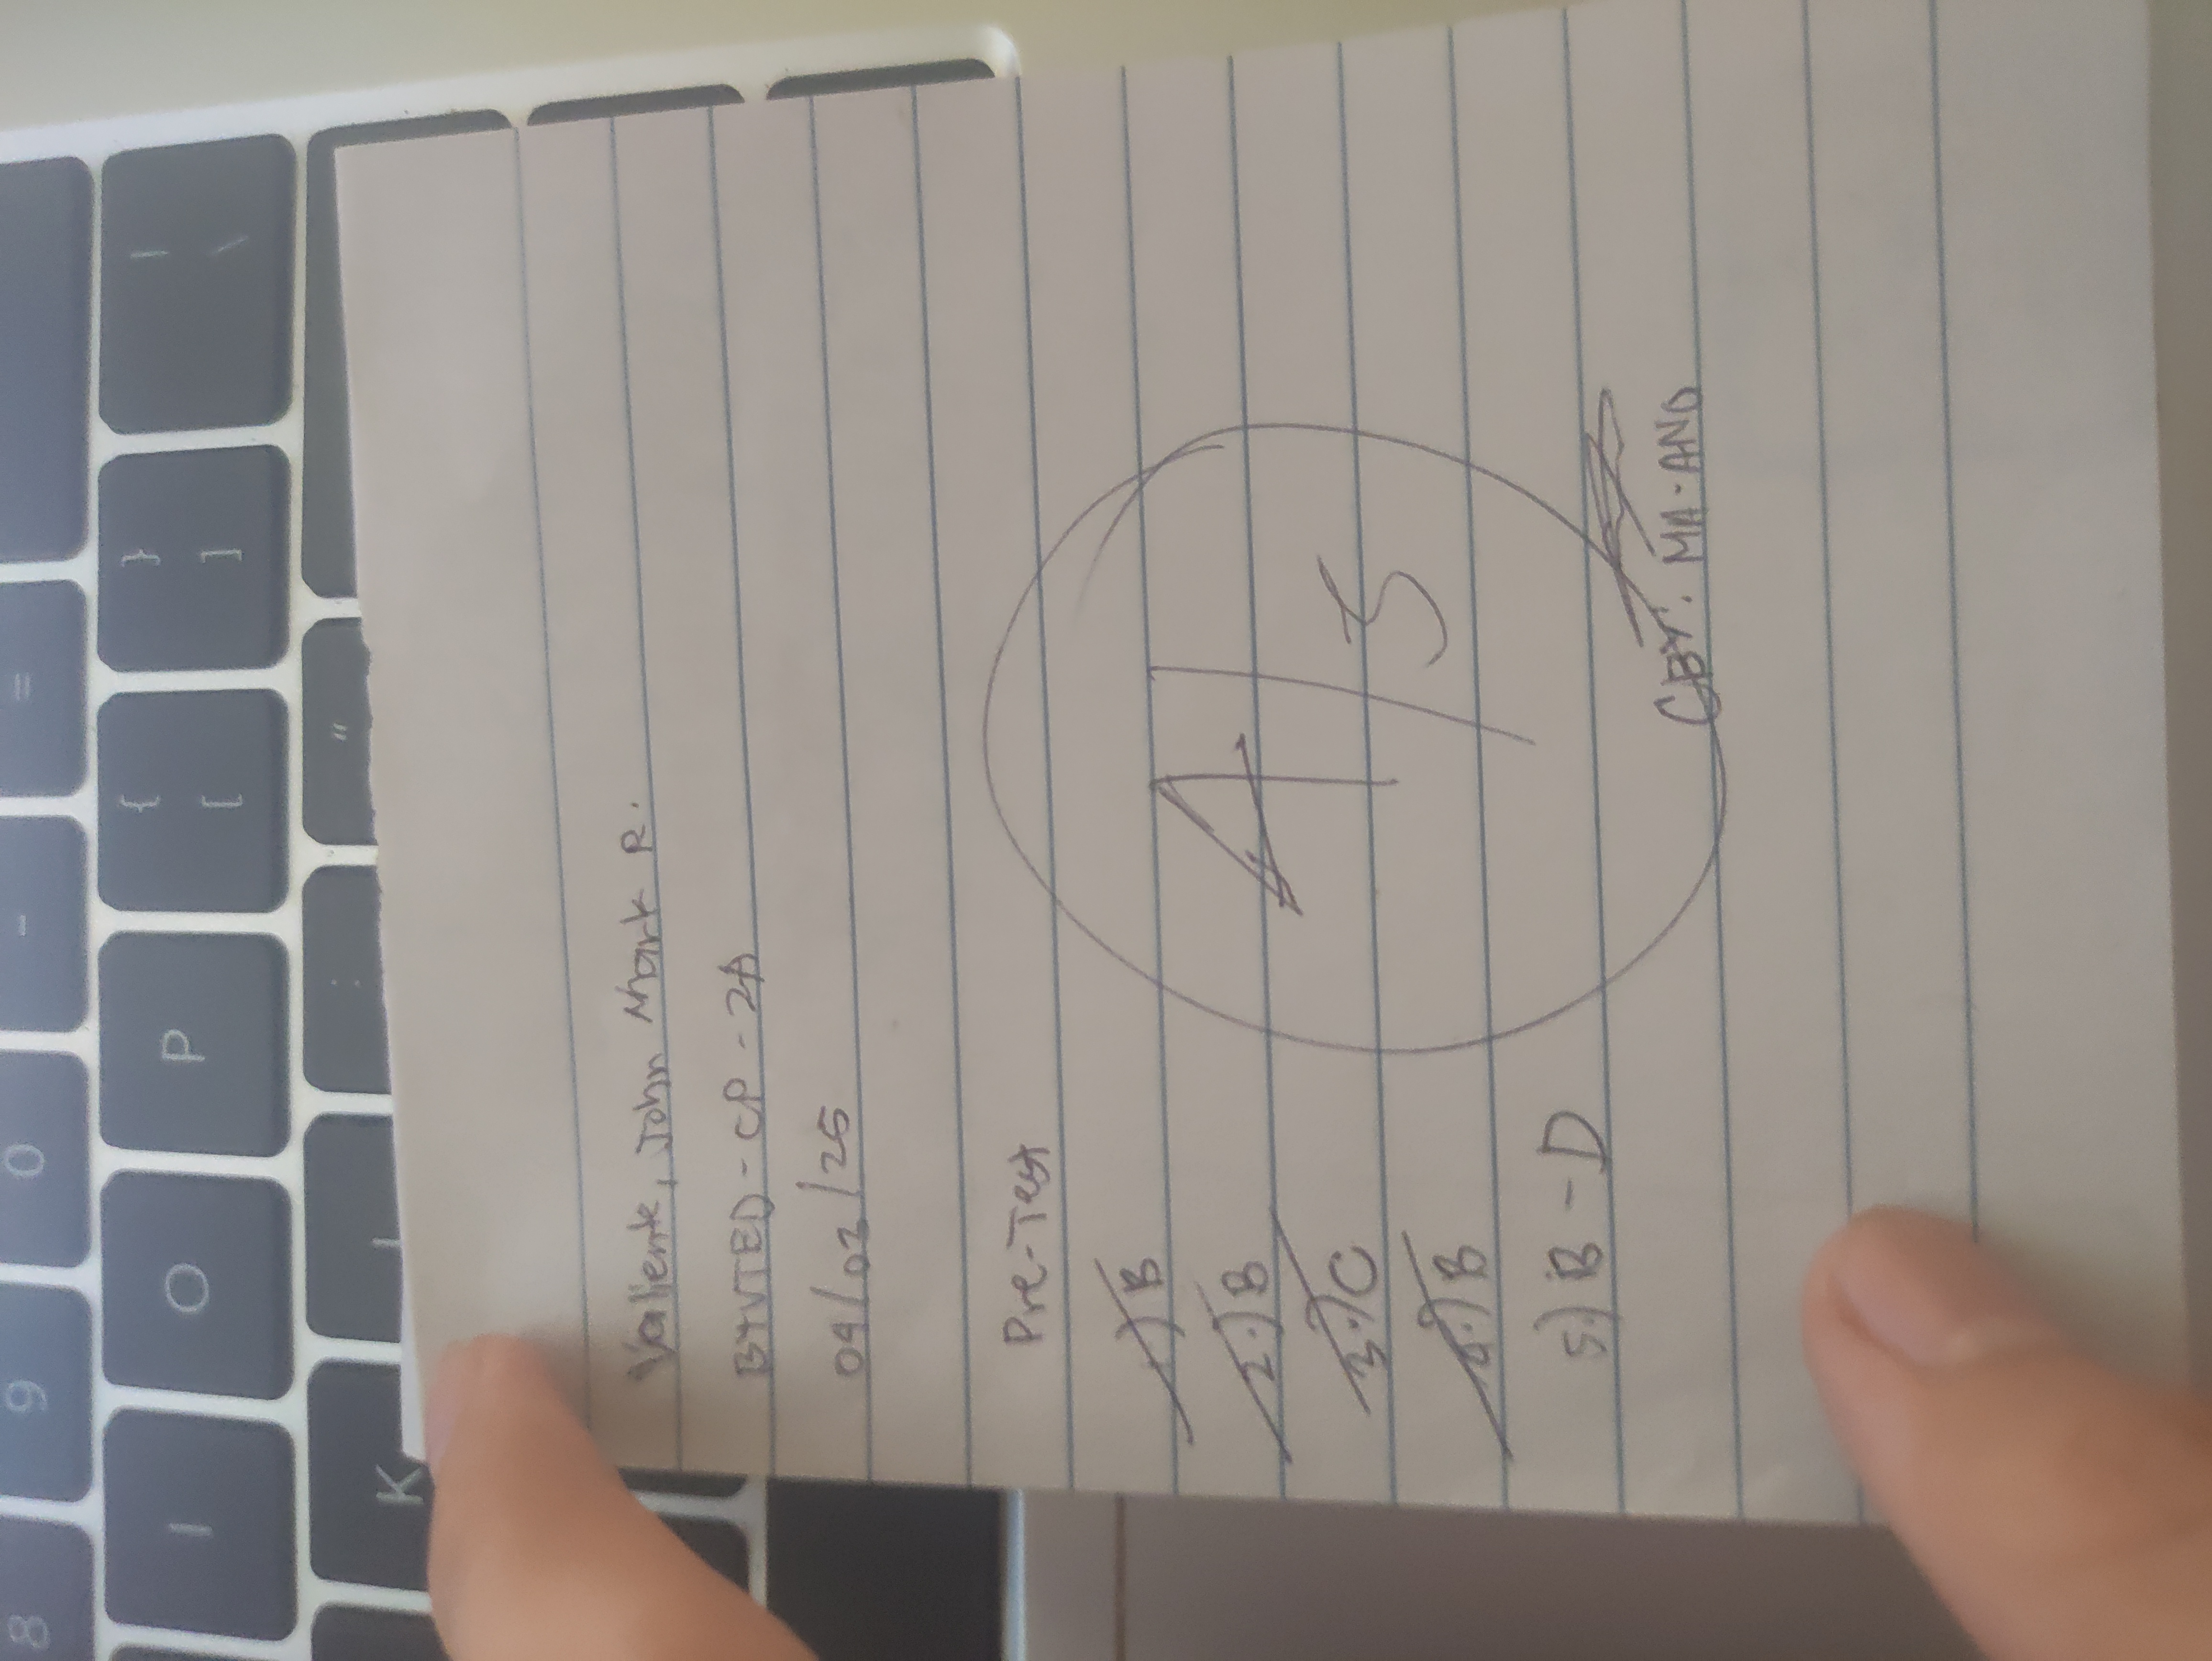 8 9 0 - =
I O P { [ } ] | \
K L : "
Valiente, John Mark R.
BTVTED - CP - 2A
04/03/25
Pre-Test
1.) B
2.) B
3.) C
4.) B
5.) B - D
4/5
CBY: MA-ANO